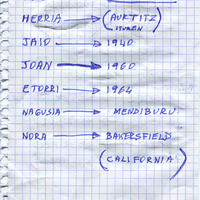 HERRIA → (AURTITZ
ITUREN)
JAIO → 1940
JOAN → 1960
ETORRI → 1964
NAGUSIA → MENDIBURU
NORA → BAKERSFIELD
(CALIFORNIA)